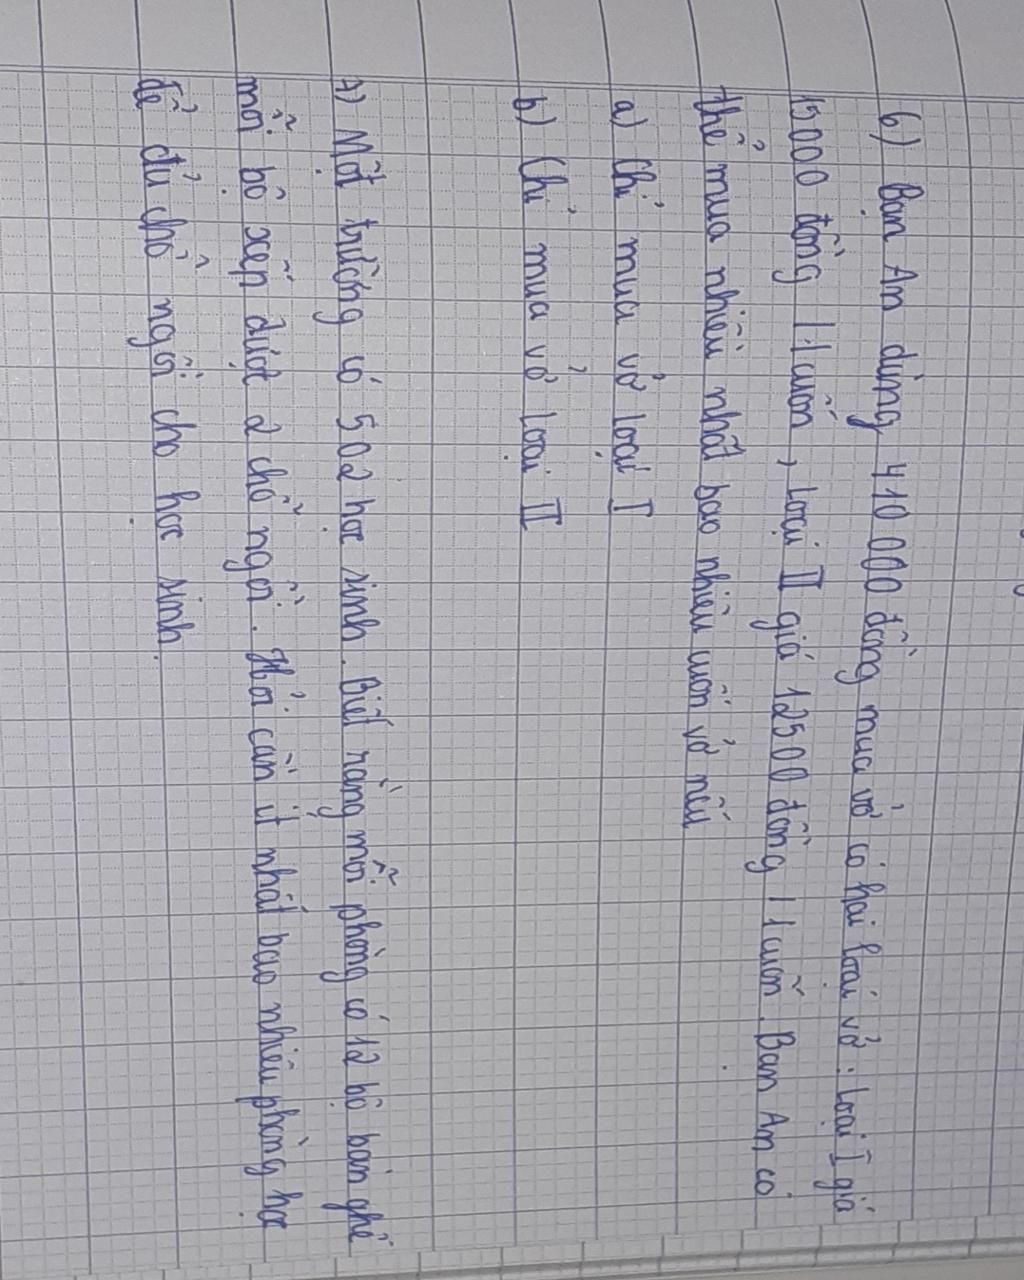 6) Bạn An dùng 410 000 đồng mua vở có hai loại vở : loại I giá
15000 đồng 1 cuốn , loại II giá 12500 đồng 1 cuốn. Bạn An có
thể mua nhiều nhất bao nhiêu cuốn vở nếu
a) Chỉ mua vở loại I
b) Chỉ mua vở loại II
7) Một trường có 502 học sinh. Biết rằng mỗi phòng có 12 bộ bàn ghế
mỗi bộ xếp được 2 chỗ ngồi. Hỏi cần ít nhất bao nhiêu phòng học
để đủ chỗ ngồi cho học sinh.